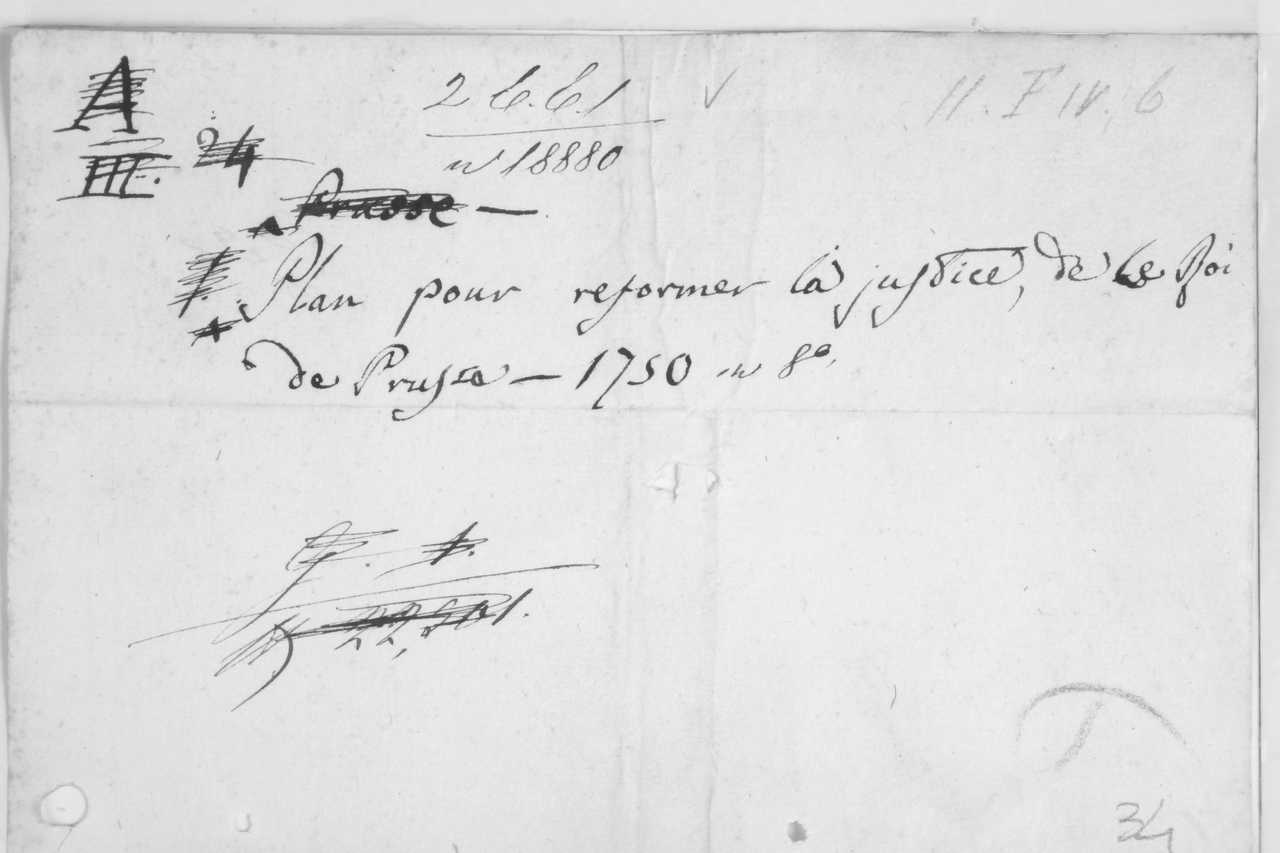 A
III. 24
2 C.C. 1
n 18880
II. F IV. 6
Prusse —
Plan pour reformer la justice, de Le Roi
de Prusse — 1750 in 8º.
22,801.
34